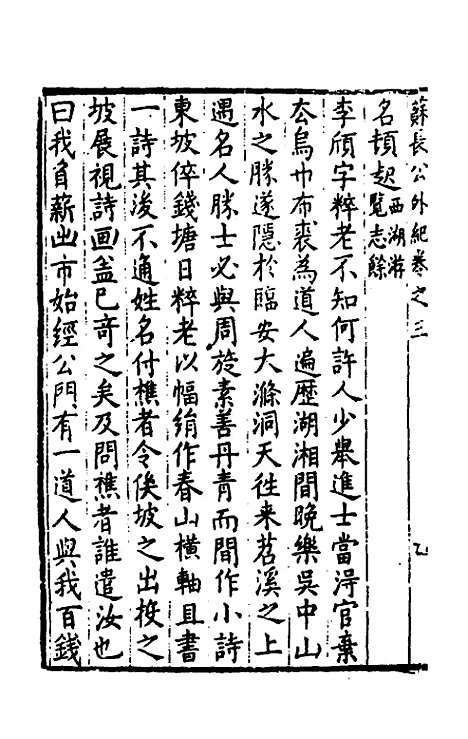 蘇長公外紀卷之三　　乙
名頓起西湖游覽志餘
李頎字粹老不知何許人少舉進士當淂官棄
厺烏巾布裘為道人遍歷湖湘間晚樂吳中山
水之勝遂隱於臨安大滌洞天徃来苕溪之上
遇名人勝士必與周旋素善丹青而間作小詩
東坡倅錢塘日粹老以幅絹作春山橫軸且書
一詩其後不通姓名付樵者令俟坡之出投之
坡展視詩画盖已竒之矣及問樵者誰遣汝也
曰我負薪出市始經公門有一道人與我百錢